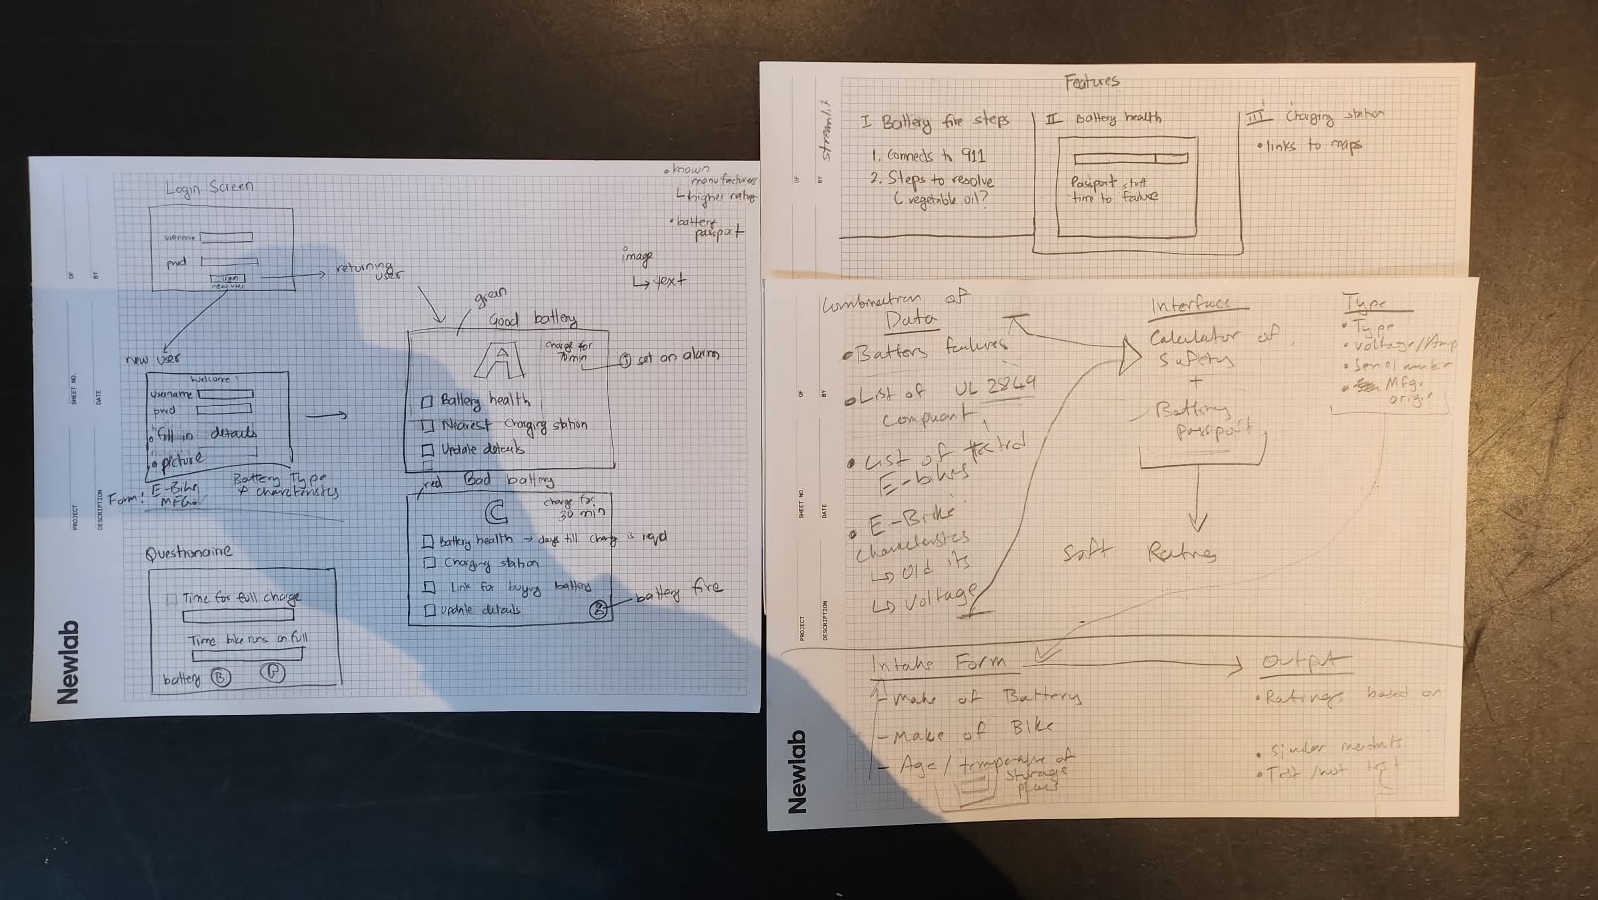 Login Screen
username
pwd
login
new user
returning
user
• known
manufacturers
↳ higher rating
• battery
passport
image
↳ text
new user
Welcome!
username
pwd
• fill in details
• picture
Form:
E-Bike
MFG
Battery Type
& charcteristics
green
Good battery
A
charge for
70 min
set an alarm
Battery health
Nearest Charging station
Update details
red
Bad battery
C
charge for
30 min
Battery health → days till charge is reqd
Charging station
Link for buying battery
Update details
B
battery fire
Questionaire
Time for full charge
Time bike runs on full
battery
B
Newlab
PROJECT
DESCRIPTION
SHEET NO.
DATE
OF
BY
Features
streamlit
I Battery fire steps
1. Connects to 911
2. Steps to resolve
( vegetable oil?
II Battery health
Passport stuff
time to failure
III Charging station
• links to maps
OF
BY
Combination of
Data
• Battery failures
• List of UL 2849
Compliant
• List of
E-bikes
• E-Bike
Characteristics
↳ Old its
↳ Voltage
Interface
Calculator of
Safety
+
Battery
Passport
Soft Rating
Type
• Type
• Voltage/Amp
• Serial number
• Mfg.
origin
Intake Form
- Make of Battery
- Make of Bike
- Age / temperature of
storage
place
Output
• Ratings based on
• Similar
• Test / not test
Newlab
PROJECT
DESCRIPTION
SHEET NO.
DATE
OF
BY